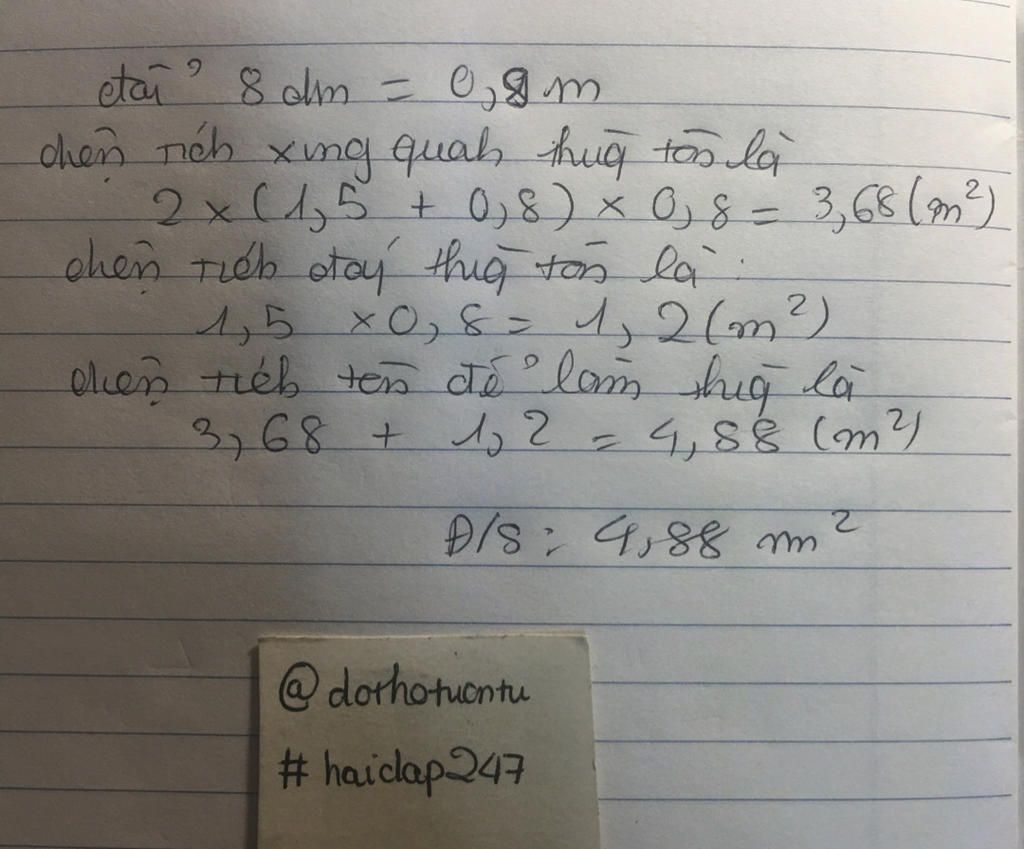 Đổi 8 dm = 0,8 m
Diện tích xung quanh thùng tôn là
2 x (1,5 + 0,8) x 0,8 = 3,68 (m²)
Diện tích đáy thùng tôn là :
1,5 x 0,8 = 1,2 (m²)
Diện tích tôn để làm thùng là
3,68 + 1,2 = 4,88 (m²)
Đ/S : 4,88 m²
@dothotuontu
# haidap247